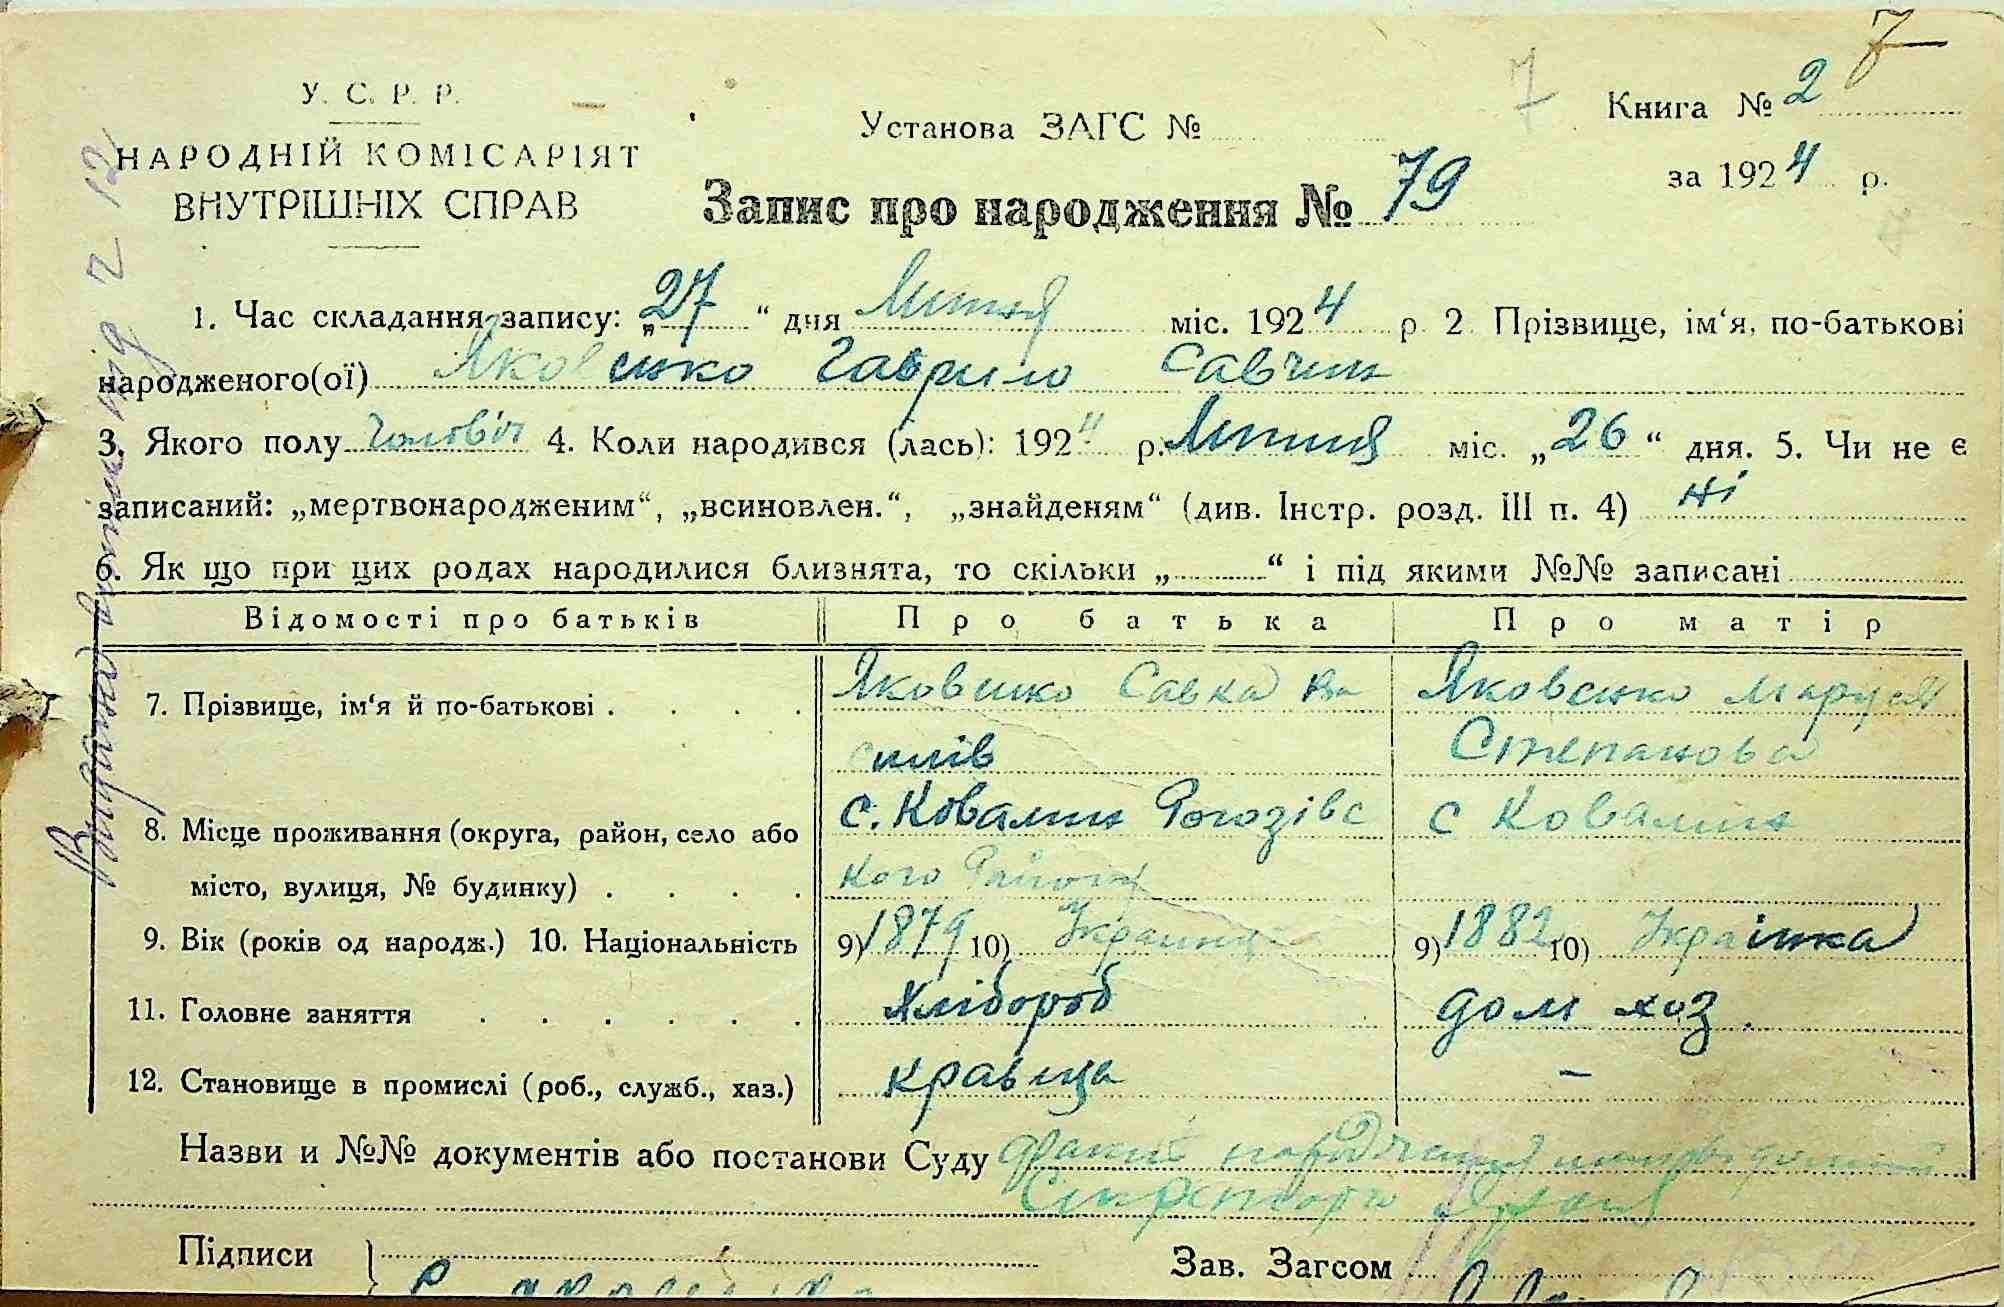 7
У. С. Р. Р.
НАРОДНІЙ КОМІСАРІЯТ
ВНУТРІШНІХ СПРАВ
Установа ЗАГС №
7
Книга № 2
за 1924 р.
Запис про народження № 79
1. Час складання запису: „27“ дня Липня міс. 1924 р 2. Прізвище, ім‘я, по-батькові
народженого(ої) Яковенко Гаврило Савчин
3. Якого полу чоловіч 4. Коли народився (лась): 1924 р. Липня міс. „26“ дня. 5. Чи не є
записаний: „мертвонародженим“, „всиновлен.“, „знайденям“ (див. Інстр. розд. III п. 4) ні
6. Як що при цих родах народилися близнята, то скільки „ “ і під якими №№ записані
Відомості про батьків Про батька Про матір
7. Прізвище, ім‘я й по-батькові . . . . Яковенко Савка Ва Яковенко Маруся
силів Степанова
8. Місце проживання (округа, район, село або с. Ковалин Рогозівс с Ковалин
місто, вулиця, № будинку) . . . . кого Району
9. Вік (років од народж.) 10. Національність 9) 1879 10) Украинец 9) 1882 10) Украінка
11. Головне заняття . . . . . . Хлібороб дом хоз.
12. Становище в промислі (роб., служб., хаз.) кравица –
Назви и №№ документів або постанови Суду
Секретарь
Підписи }
Зав. Загсом